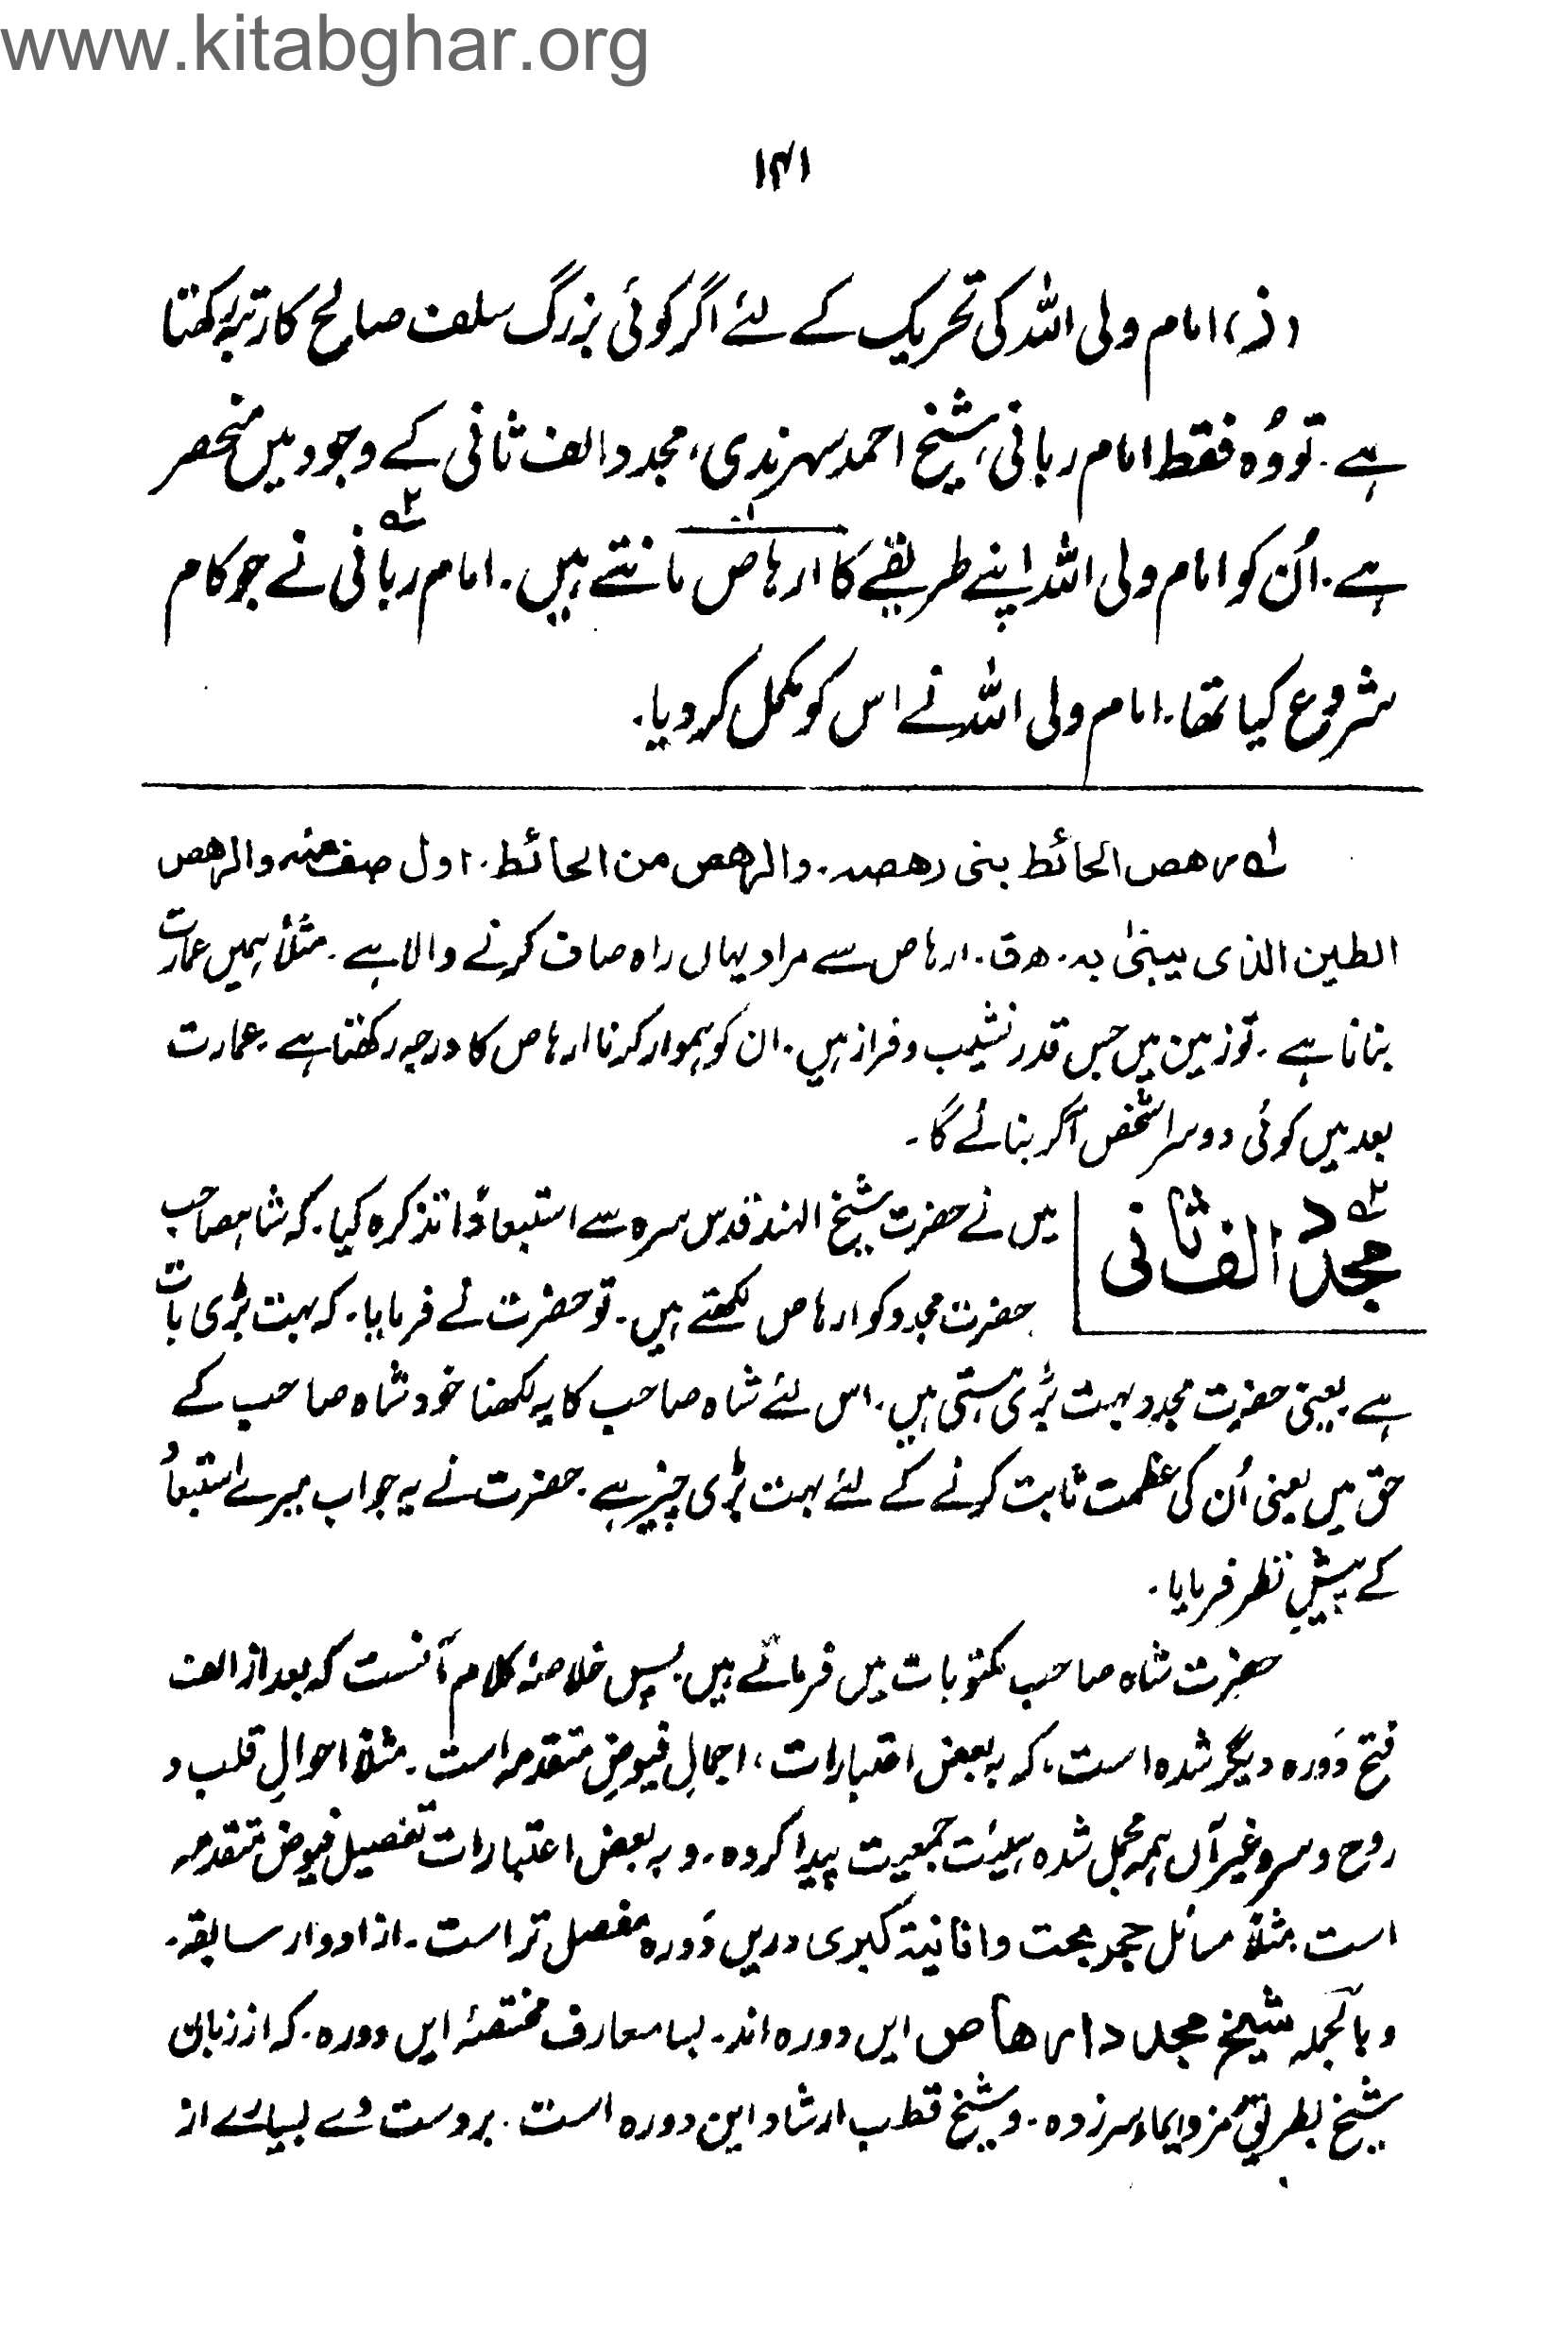 www.kitabghar.org
۱۴۱
(ذ) امام ولی اللہ کی تحریک کے لئے اگر کوئی بزرگ سلف صالح کا رتبہ رکھتا
ہے۔ تو وُہ فقط امام ربانی، شیخ احمد سہرندی، مجدد الف ثانی کے وجود میں منحصر
ہے۔ اُن کو امام ولی اللہ اپنے طریقے کا ارہاص ۱؎ مانتے ہیں۔ امام ربانی ۲؎ نے جو کام
شروع کیا تھا۔ امام ولی اللہ نے اس کو مکمل کر دیا۔
۱؎ رهص الحائط بنی رهصه۔ والرهص من الحائط۔ اول صف منه والرهص
الطین الذی یبنیٰ به۔ ھ ق۔ ارہاص سے مراد یہاں راہ صاف کرنے والا ہے۔ مثلاً ہمیں عمارت
بنانا ہے۔ تو زمین میں جس قدر نشیب و فراز ہیں۔ ان کو ہموار کرنا ارہاص کا درجہ رکھتا ہے۔ عمارت
بعد میں کوئی دوسرا شخص آکر بنائے گا۔
۲؎ مجدد الف ثانی
میں نے حضرت شیخ الہند قدس سرہ سے استبعاداً تذکرہ کیا۔ کہ شاہصاحب
حضرت مجدد کو ارہاص لکھتے ہیں۔ تو حضرت نے فرمایا۔ کہ بہت بڑی بات
ہے یعنی حضرت مجدد بہت بڑی ہستی ہیں۔ اس لئے شاہ صاحب کا یہ لکھنا خود شاہ صاحب کے
حق میں یعنی اُن کی عظمت ثابت کرنے کے لئے بہت بڑی چیز ہے۔ حضرت نے یہ جواب میرے استبعاد
کے پیشِ نظر فرمایا۔
حضرت شاہ صاحب مکتوبات میں فرماتے ہیں۔ پس خلاصۂ کلام آنست کہ بعد از الف
فتح دَورہ دیگر شدہ است، کہ بہ بعض اعتبارات، اجمالِ فیوضِ متقدمہ است۔ مثلاً احوالِ قلب و
روح و سر و غیر آں ہمہ مجمل شدہ ہیئت جمعیت پیدا کردہ۔ و بہ بعض اعتبارات تفصیل فیوض متقدمہ
است مثلاً مسائل حجر بحت و انانیۃ کبری دریں دَورہ مفصل تر است۔ از ادوار سابقہ۔
و بالجملہ شیخ مجدد ارهاص ایں دورہ اند۔ بسا معارف مختصۂ ایں دورہ۔ کہ از زبان
شیخ بطریق رمز و ایماء سرزدہ۔ و شیخ قطب ارشاد این دورہ است۔ بر دست وے بسیارے از